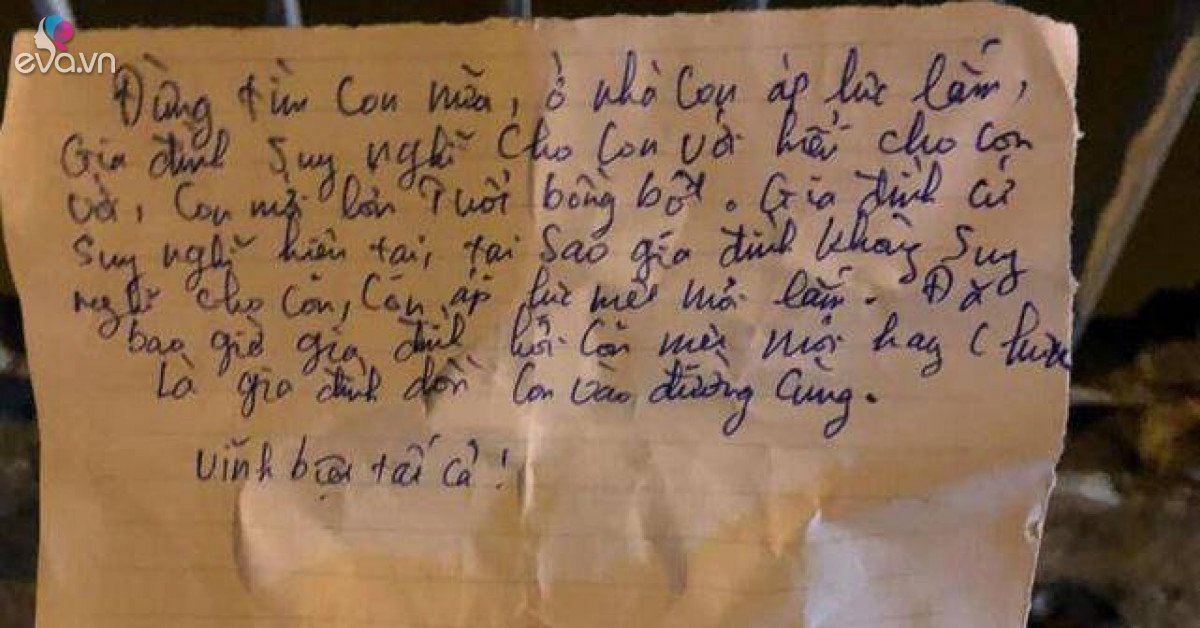 eva.vn
Đừng tìm con nữa, ở nhà con áp lực lắm,
Gia đình suy nghĩ cho con với hiểu cho con
với, con mới lớn tuổi bồng bột. Gia đình cứ
suy nghĩ hiện tại, tại sao gia đình không suy
nghĩ cho con, con áp lực mệt mỏi lắm. Đã
bao giờ gia đình hỏi con mệt mỏi hay chưa
Là gia đình dồn con vào đường cùng.
Vĩnh biệt tất cả!